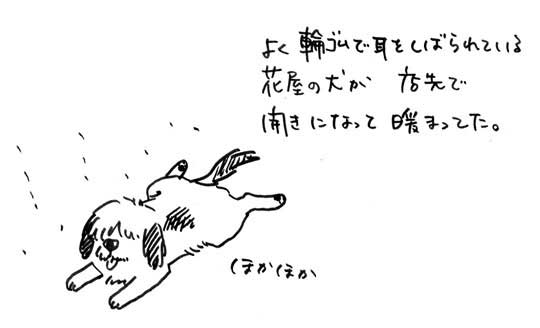 よく輪ゴムで耳をしばられている
花屋の犬が 店先で
開きになって暖まってた。
ほかほか